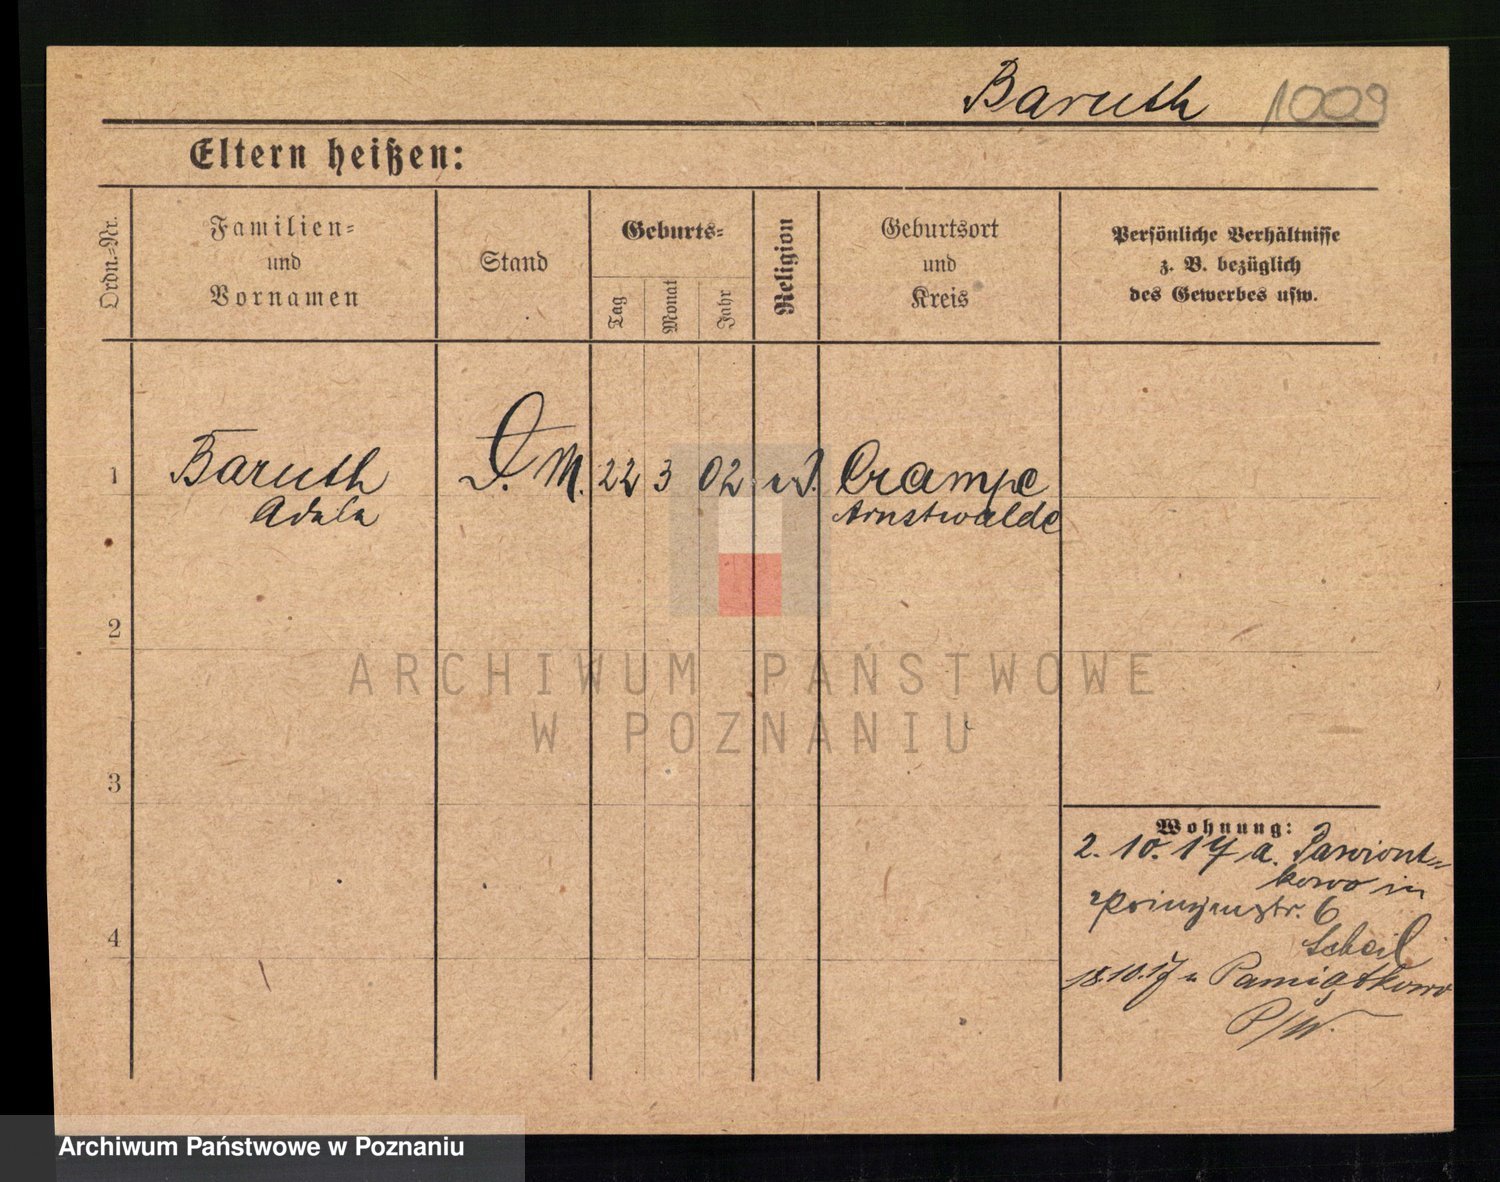 Baruth 1009
Eltern heißen:
Ordn.=Nr.
Familien=
und
Vornamen
Stand
Geburts=
Tag
Monat
Jahr
Religion
Geburtsort
und
Kreis
Persönliche Verhältnisse
z. B. bezüglich
des Gewerbes usw.
1 Baruth D. M. 22 3 02 Crampe
Adele Arnstwalde
2
ARCHIWUM PAŃSTWOWE
W POZNANIU
3
Wohnung:
2. 10. 17 a.
kowo in
Prinzenstr. 6
Scheil
18.10.17 n Pamiątkowo
P/W.
4
Archiwum Państwowe w Poznaniu